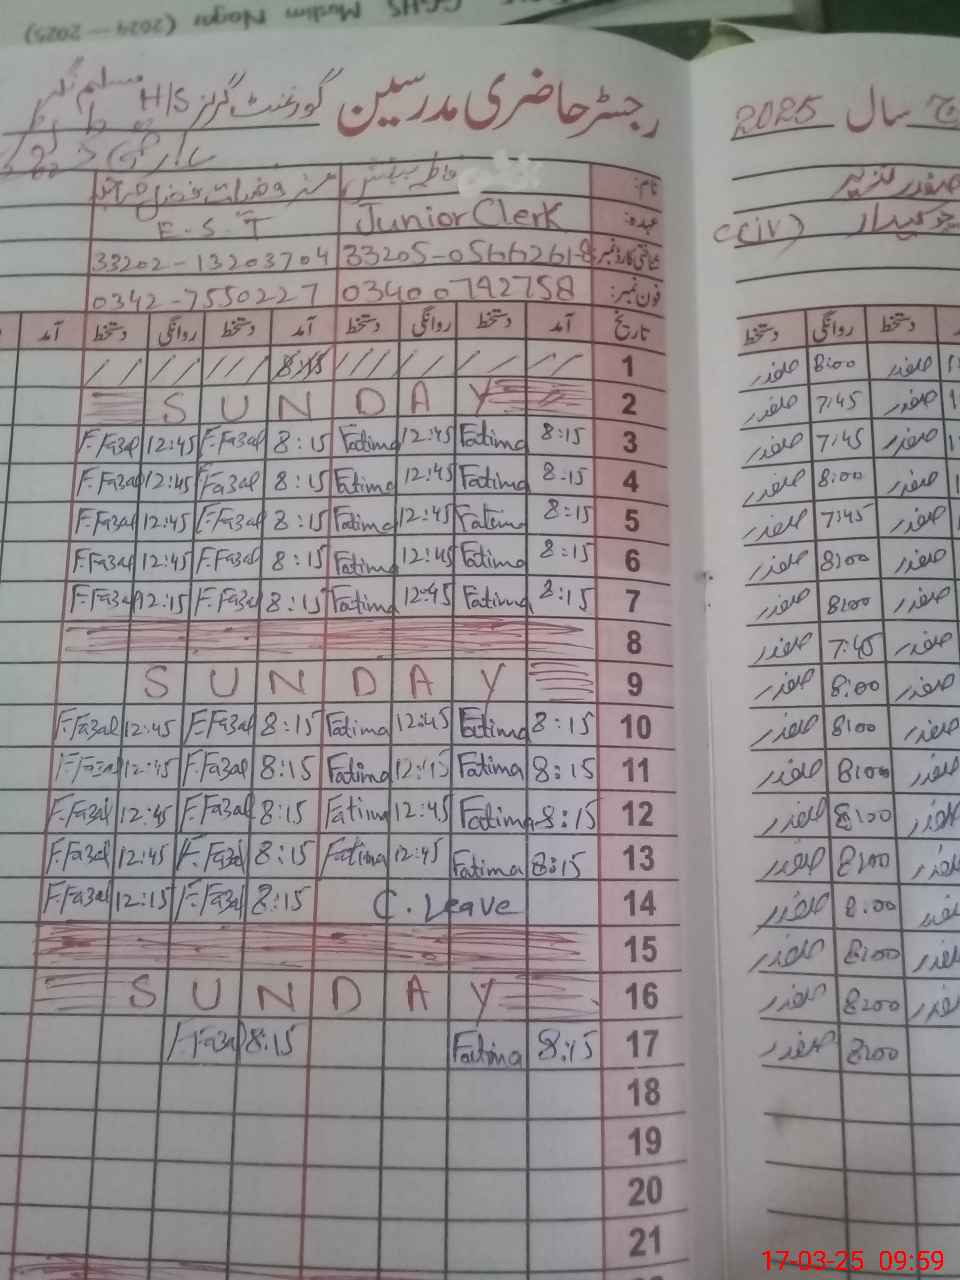 GGHS Muslim Nagar (2024-2025)
رجسٹر حاضری مدرسین گورنمنٹ گرلز H/S مسلم نگر
سال 2025
نام: فاطمہ
صفدر
عہدہ: Junior Clerk E.S.T
چوکیدار (C-IV)
شناختی کارڈ نمبر: 33205-0566261-8 33202-13203704
فون نمبر: 03400792758 0342-7550227
تاریخ آمد دستخط روانگی دستخط آمد دستخط روانگی دستخط آمد
دستخط روانگی دستخط
1 / / / / / / / / / 8:15 / / / / / / /
صفدر 8:00 صفدر
2 S U N D A Y
صفدر 7:45 صفدر
3 8:15 Fatima 12:45 Fatima 8:15 F.Fa3al 12:45 F.Fa3al
صفدر 7:45 صفدر
4 8:15 Fatima 12:45 Fatima 8:15 F.Fa3al 12:45 F.Fa3al
صفدر 8:00 صفدر
5 8:15 Fatima 12:45 Fatima 8:15 F.Fa3al 12:45 F.Fa3al
صفدر 7:45 صفدر
6 8:15 Fatima 12:45 Fatima 8:15 F.Fa3al 12:45 F.Fa3al
صفدر 8:00 صفدر
7 8:15 Fatima 12:45 Fatima 8:15 F.Fa3al 12:15 F.Fa3al
صفدر 8:00 صفدر
8
صفدر 7:45 صفدر
9 S U N D A Y
صفدر 8:00 صفدر
10 8:15 Fatima 12:45 Fatima 8:15 F.Fa3al 12:45 F.Fa3al
صفدر 8:00 صفدر
11 8:15 Fatima 12:15 Fatima 8:15 F.Fa3al 12:45 F.Fa3al
صفدر 8:00 صفدر
12 8:15 Fatima 12:45 Fatima 8:15 F.Fa3al 12:45 F.Fa3al
صفدر 8:00 صفدر
13 8:15 Fatima 12:45 Fatima 8:15 F.Fa3al 12:45 F.Fa3al
صفدر 8:00 صفدر
14 C. Leave 8:15 F.Fa3al 12:15 F.Fa3al
صفدر 8:00 صفدر
15
صفدر 8:00 صفدر
16 S U N D A Y
صفدر 8:00 صفدر
17 8:15 Fatima 8:15 F.Fa3al
صفدر 8:00
18
19
20
21
17-03-25 09:59